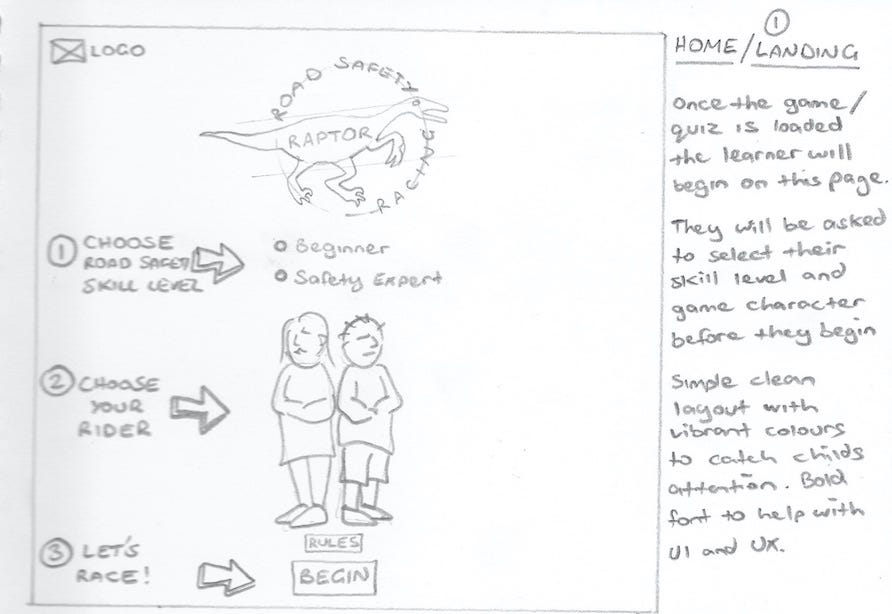 LOGO
ROAD SAFETY
RAPTOR
① CHOOSE
ROAD SAFETY
SKILL LEVEL
Beginner
Safety Expert
② CHOOSE
YOUR
RIDER
RULES
③ LET'S
RACE!
BEGIN
①
HOME/LANDING
Once the game/
quiz is loaded
the learner will
begin on this page.
They will be asked
to select their
skill level and
game character
before they begin
Simple clean
layout with
vibrant colours
to catch childs
attention. Bold
font to help with
UI and UX.